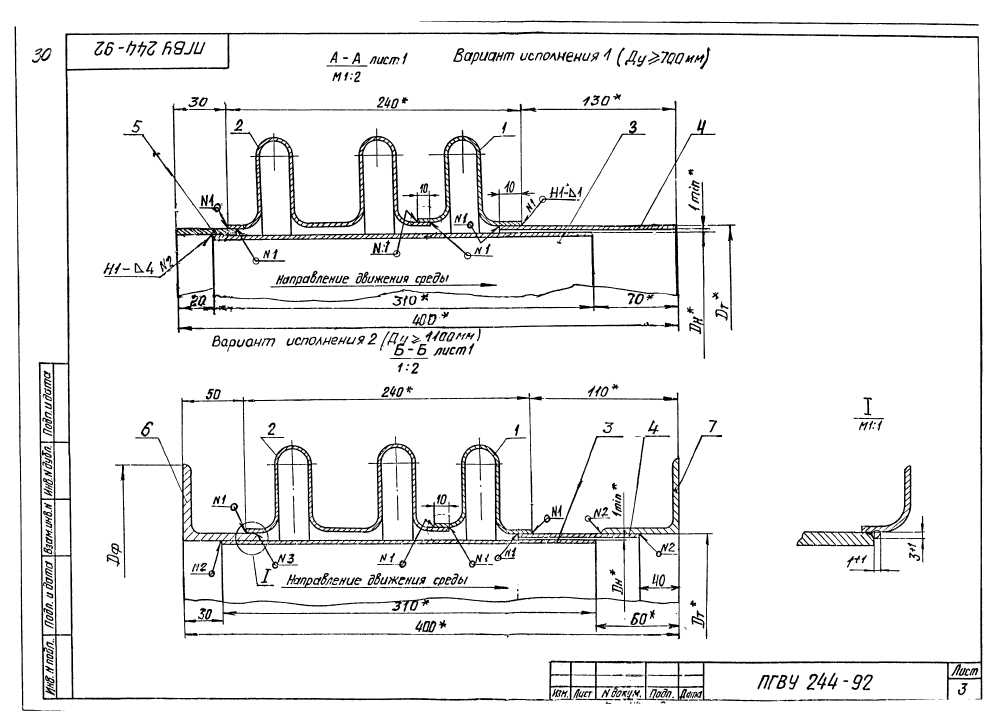 30
ПГВУ 244-92
А-А лист1
М1:2
Вариант исполнения 1 (Ду≥700мм)
30
240*
130*
5
2
1
3
4
10
10
Н1-Δ1
N1
N1
N1
N1
N1
N1
1 min*
Н1-Δ4 N2
Направление движения среды
20
310*
70*
400*
Dн*
Dт*
Вариант исполнения 2 (Ду≥1100мм)
Б-Б лист1
1:2
50
240*
110*
I
М1:1
6
2
1
3
4
7
N1
10
N1
N2
1min*
Dф
N2
I
N3
N1
N1
N1
N2
Направление движения среды
Dн*
40
Dт*
1+1
3+1
30
310*
60*
400*
Инв. N подл.
Подп. и дата
Взам.инв.N
Инв.N дубл.
Подп. и дата
Изм.
Лист
N докум.
Подп.
Дата
ПГВУ 244-92
Лист
3